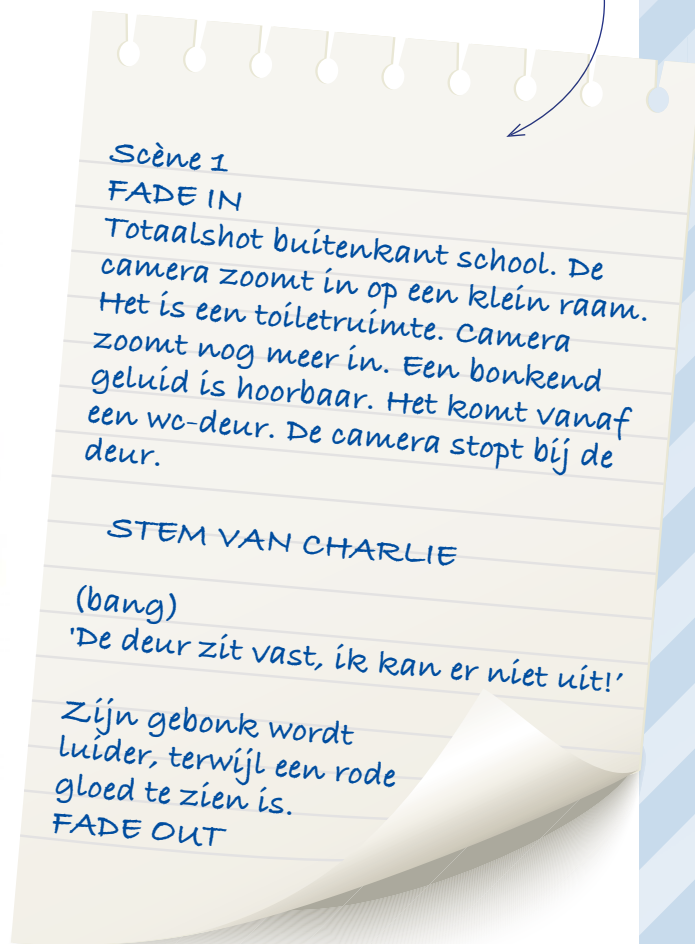 Scène 1
FADE IN
Totaalshot buitenkant school. De
camera zoomt in op een klein raam.
Het is een toiletruimte. Camera
zoomt nog meer in. Een bonkend
geluid is hoorbaar. Het komt vanaf
een wc-deur. De camera stopt bij de
deur.
STEM VAN CHARLIE
(bang)
'De deur zit vast, ik kan er niet uit!'
Zijn gebonk wordt
luider, terwijl een rode
gloed te zien is.
FADE OUT